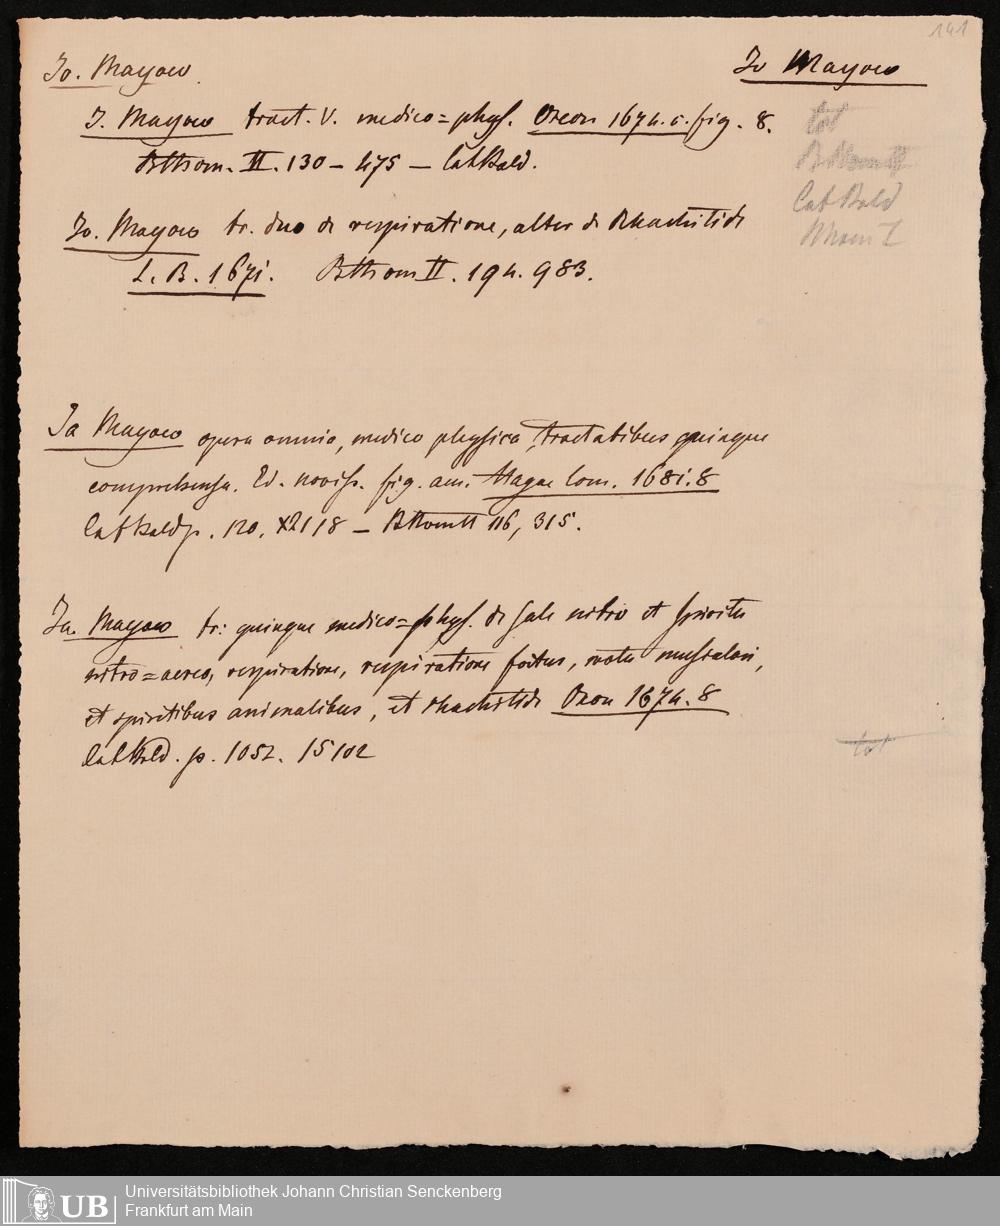 141
Jo. Mayow.
Jo Mayow
J. Mayow tract. V. medico=phys. Oxon 1674. c. fig. 8.
BThom. II. 130 – 475 – CatBald.
tot
BThom II
CatBald
Jo. Mayow tr. duo de respiratione, alter de Rhachitide
L. B. 1671. BThom II. 194. 983.
Jo Mayow opera omnia, medico physica, tractatibus quinque
comprehensa. Ed. noviss. fig. aen. Hagae Com. 1681. 8
CatBald p. 120. – BThom II 116, 315.
Jo. Mayow tr: quinque medico=phys. de Sale nitro et spiritu
nitro=aereo, respiratione, respiratione foetus, motu musculari,
et spiritibus animalibus, et rhachitide Oxon 1674. 8
CatBald. p. 1052. 15102
tot
UB
Universitätsbibliothek Johann Christian Senckenberg
Frankfurt am Main